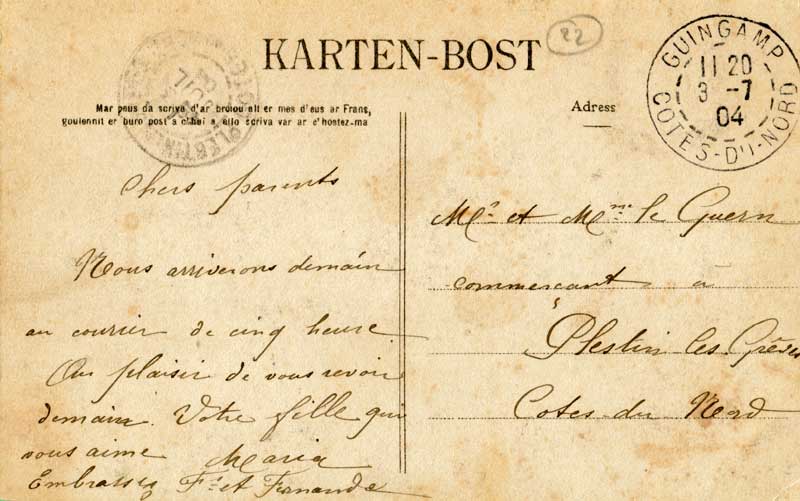 KARTEN-BOST
22
GUINGAMP
11 20
3 -7
04
COTES-DU-NORD
PLESTIN
Mar peus da scriva d'ar broiou all er mes d'eus ar Frans,
goulennit er buro post a c'hei a ello scriva var ar c'hostez-ma
Adress
Chers parents
Nous arriverons demain
au courrier de cinq heure
Au plaisir de vous revoir
demain. Votre fille qui
vous aime Maria
Embrassez F. et Fernande
Mr et Mme le Guern
commerçant à
Plestin les Grèves
Cotes-du Nord